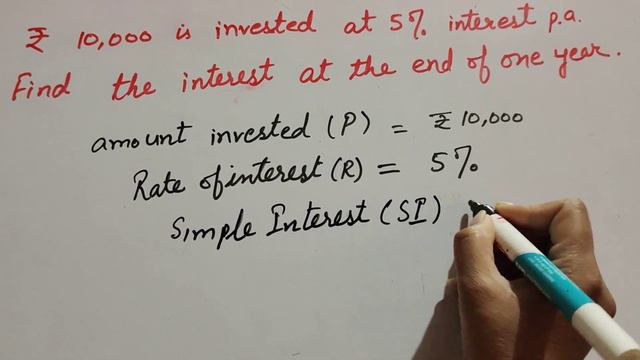 ₹ 10,000 is invested at 5% interest p.a.
Find the interest at the end of one year.
amount invested (P) = ₹ 10,000
Rate of interest (R) = 5%
Simple Interest (SI)